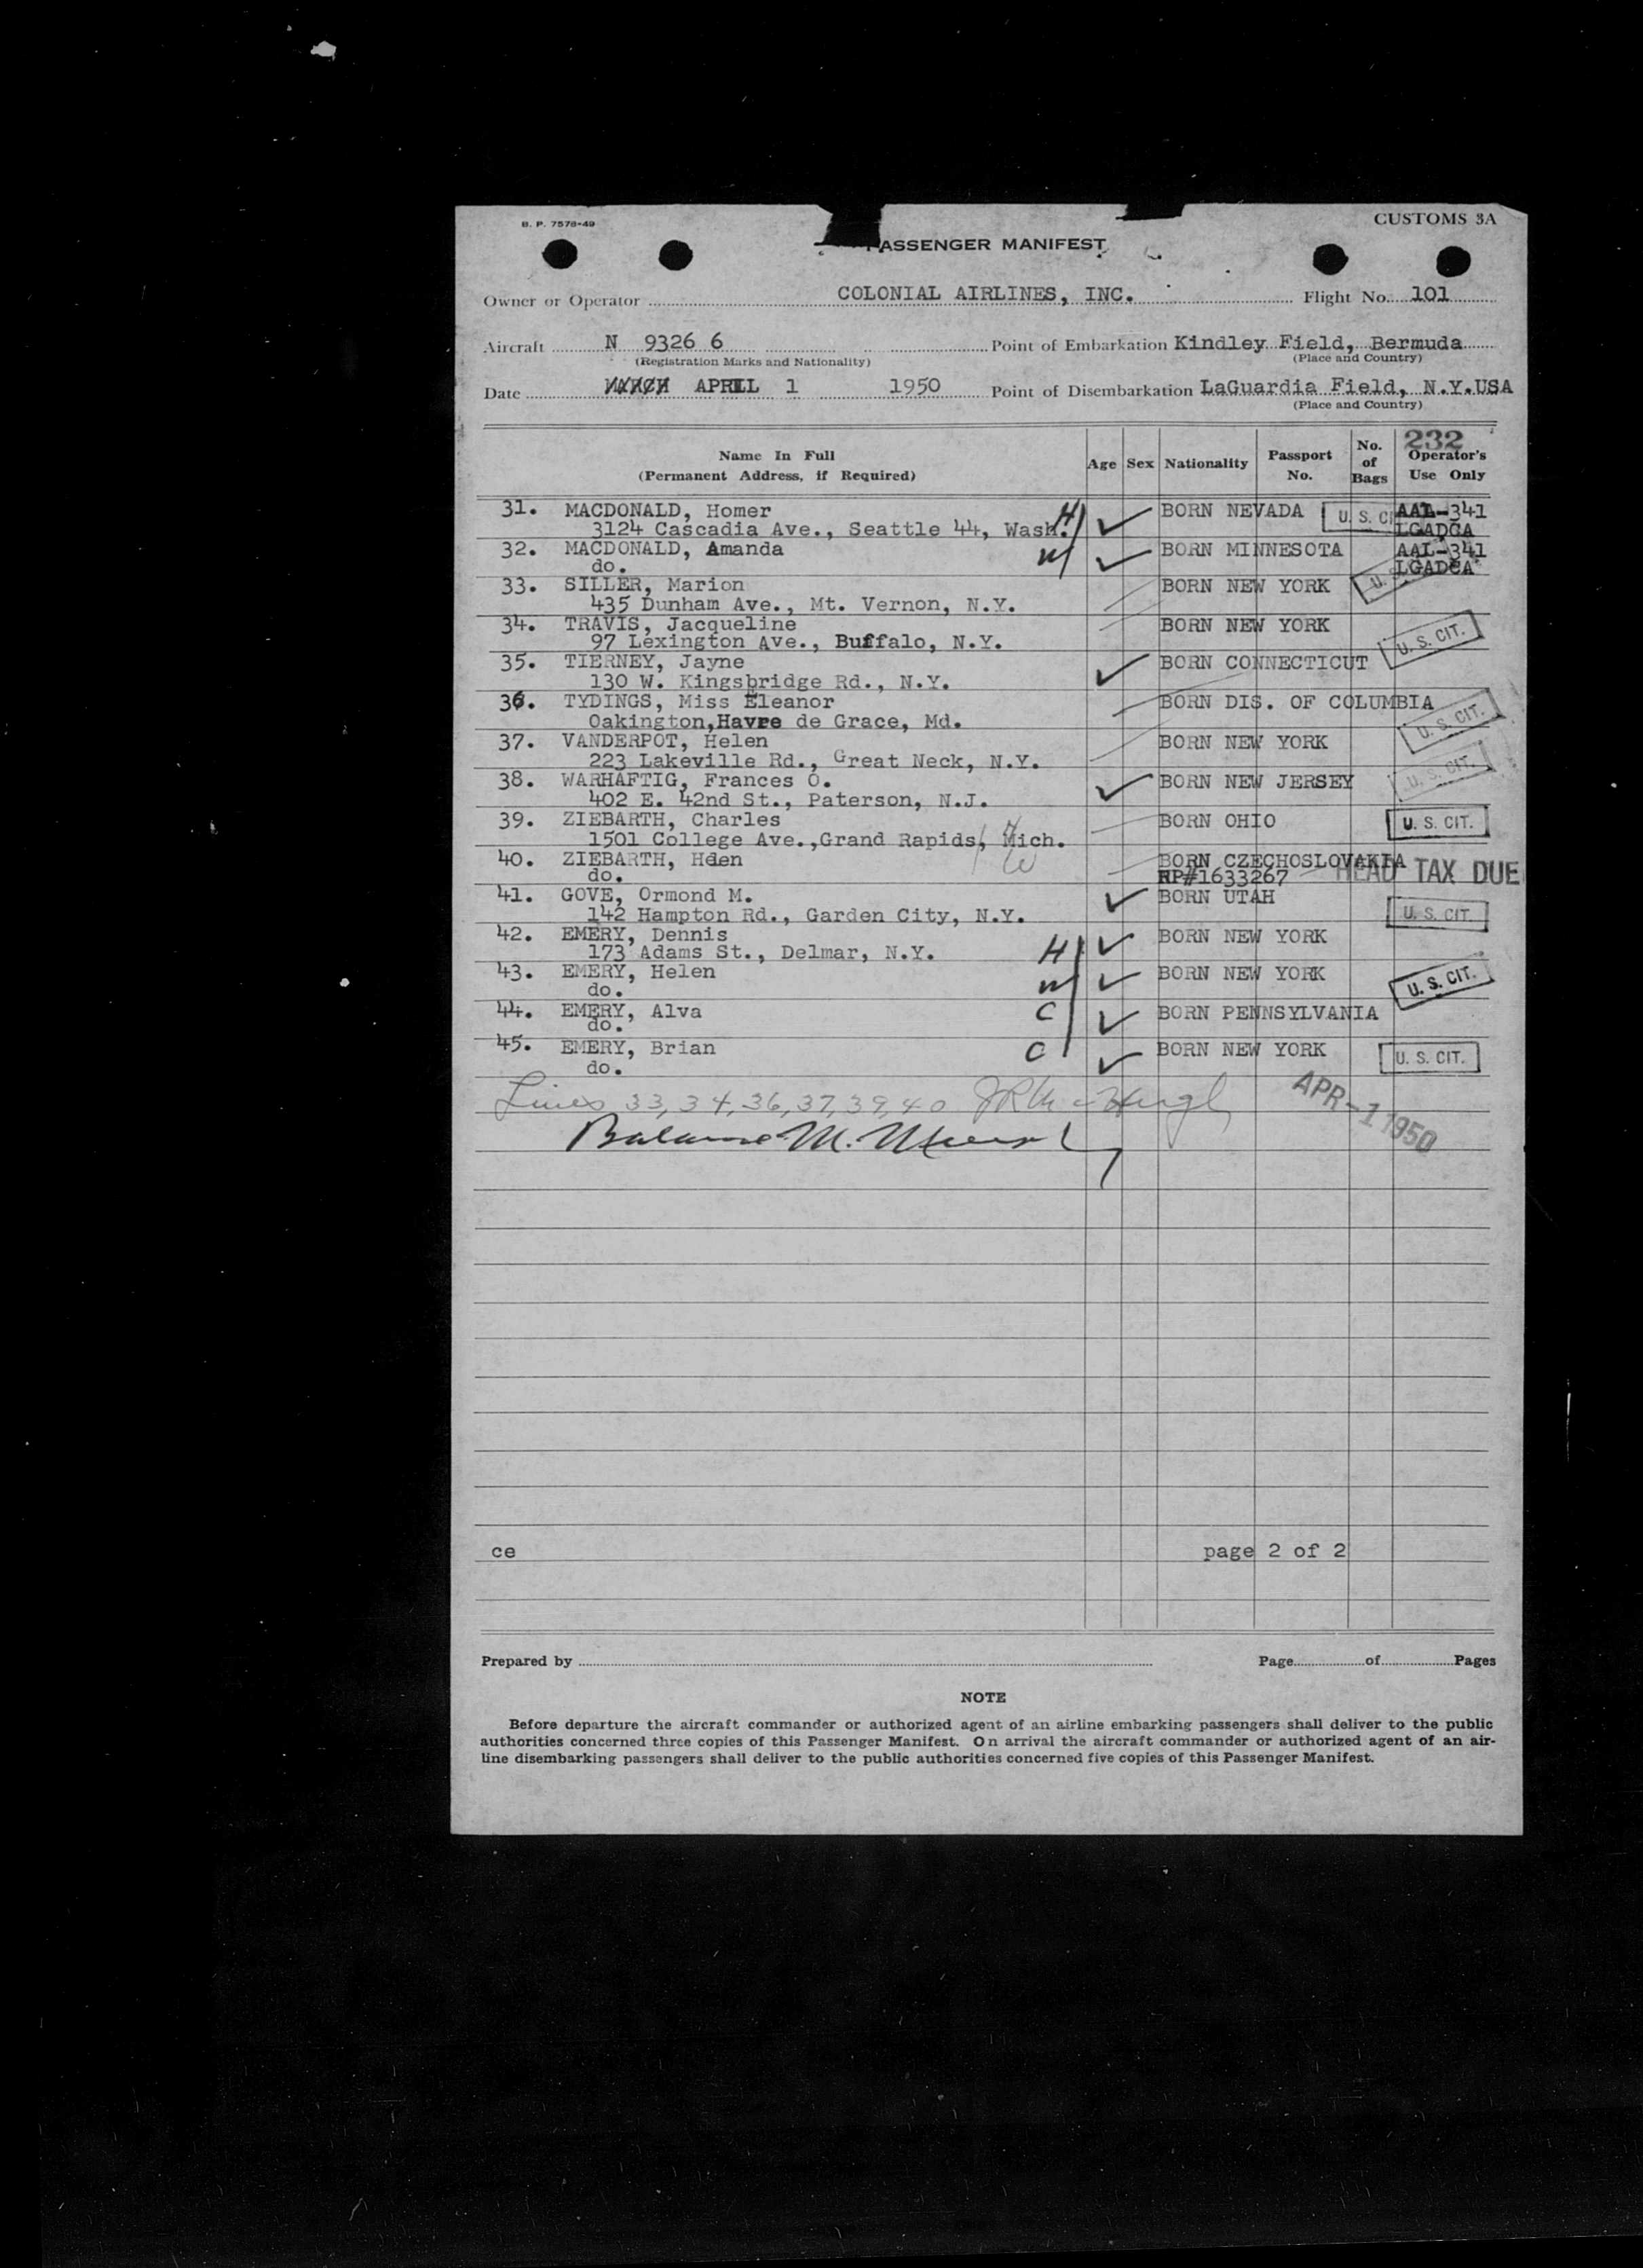 B. P. 7578-49
CUSTOMS 3A
PASSENGER MANIFEST
Owner or Operator COLONIAL AIRLINES, INC. Flight No. 101
Aircraft N 9326 6 Point of Embarkation Kindley Field, Bermuda
(Registration Marks and Nationality) (Place and Country)
Date APRIL 1 1950 Point of Disembarkation LaGuardia Field, N.Y.USA
(Place and Country)
232
Name In Full
(Permanent Address, if Required)
Age Sex Nationality Passport No. No. of Bags Operator's Use Only
31. MACDONALD, Homer H BORN NEVADA U. S. CI AAL-341
3124 Cascadia Ave., Seattle 44, Wash. LGADCA
32. MACDONALD, Amanda W BORN MINNESOTA AAL-341
do. LGADCA
33. SILLER, Marion BORN NEW YORK U.
435 Dunham Ave., Mt. Vernon, N.Y.
34. TRAVIS, Jacqueline BORN NEW YORK U. S. CIT.
97 Lexington Ave., Buffalo, N.Y.
35. TIERNEY, Jayne BORN CONNECTICUT
130 W. Kingsbridge Rd., N.Y.
36. TYDINGS, Miss Eleanor BORN DIS. OF COLUMBIA
Oakington,Havre de Grace, Md. U. S. CIT.
37. VANDERPOT, Helen BORN NEW YORK
223 Lakeville Rd., Great Neck, N.Y. U. S. CIT.
38. WARHAFTIG, Frances O. BORN NEW JERSEY
402 E. 42nd St., Paterson, N.J.
39. ZIEBARTH, Charles H BORN OHIO U. S. CIT.
1501 College Ave.,Grand Rapids, Mich.
40. ZIEBARTH, Helen W BORN CZECHOSLOVAKIA
do. RP#1633267 HEAD TAX DUE
41. GOVE, Ormond M. BORN UTAH
142 Hampton Rd., Garden City, N.Y. U. S. CIT.
42. EMERY, Dennis BORN NEW YORK
173 Adams St., Delmar, N.Y. H
43. EMERY, Helen W BORN NEW YORK U. S. CIT.
do.
44. EMERY, Alva C BORN PENNSYLVANIA
do.
45. EMERY, Brian C BORN NEW YORK U. S. CIT.
do.
Lines 33, 34, 36, 37, 39, 40
APR -1 1950
ce page 2 of 2
Prepared by Page of Pages
NOTE
Before departure the aircraft commander or authorized agent of an airline embarking passengers shall deliver to the public
authorities concerned three copies of this Passenger Manifest. On arrival the aircraft commander or authorized agent of an air-
line disembarking passengers shall deliver to the public authorities concerned five copies of this Passenger Manifest.